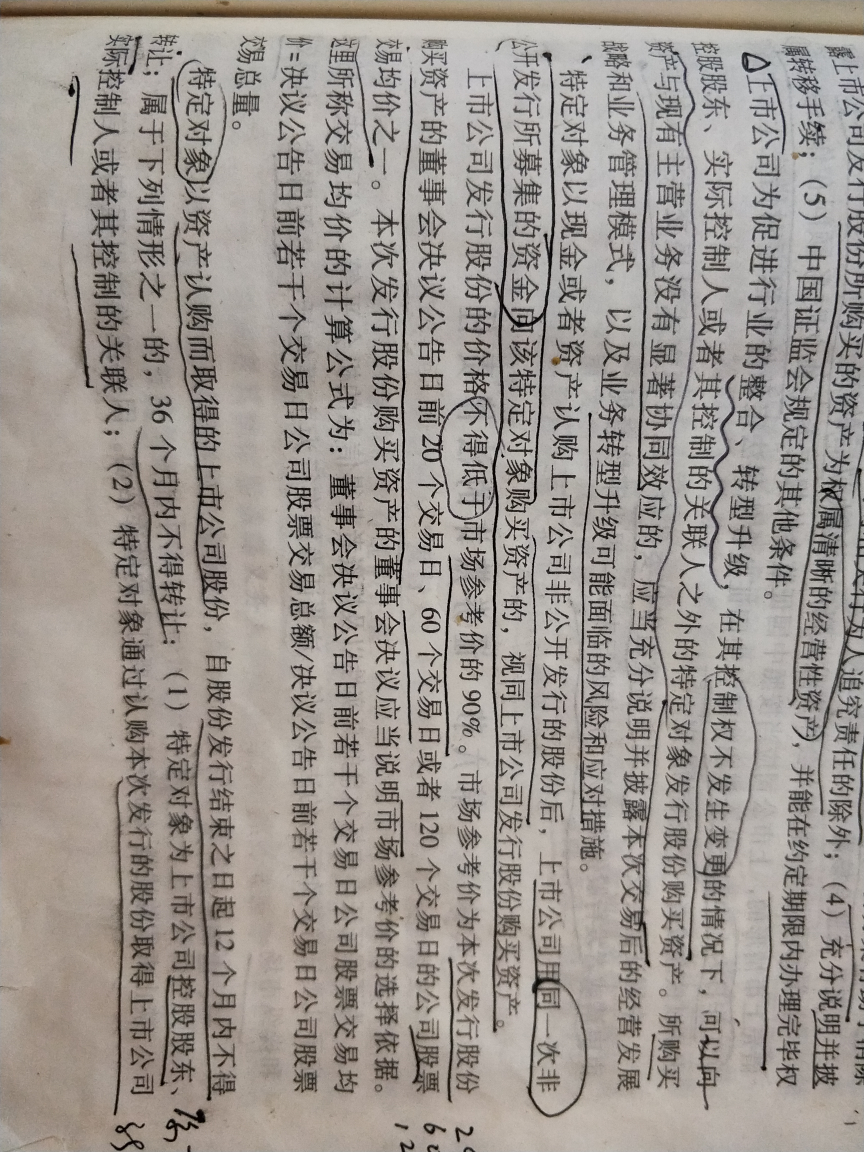 上市公司发行股份所购买的资产为权属清晰的经营性资产,并能在约定期限内办理完毕权
追究责任的除外;(4)充分说明并披
属转移手续;(5)中国证监会规定的其他条件。
上市公司为促进行业的整合、转型升级,在其控制权不发生变更的情况下,可以向
控股股东、实际控制人或者其控制的关联人之外的特定对象发行股份购买资产。所购买
资产与现有主营业务没有显著协同效应的,应当充分说明并披露本次交易后的经营发展
战略和业务管理模式,以及业务转型升级可能面临的风险和应对措施。
特定对象以现金或者资产认购上市公司非公开发行的股份后,上市公司用同一次非
公开发行所募集的资金向该特定对象购买资产的,视同上市公司发行股份购买资产。
上市公司发行股份的价格不得低于市场参考价的90%。市场参考价为本次发行股份
购买资产的董事会决议公告日前20个交易日、60个交易日或者120个交易日的公司股票
交易均价之一。本次发行股份购买资产的董事会决议应当说明市场参考价的选择依据。
这里所称交易均价的计算公式为:董事会决议公告日前若干个交易日公司股票交易均
价=决议公告日前若干个交易日公司股票交易总额/决议公告日前若干个交易日公司股票
交易总量。
特定对象以资产认购而取得的上市公司股份,自股份发行结束之日起12个月内不得
转让;属于下列情形之一的,36个月内不得转让:(1)特定对象为上市公司控股股东、
实际控制人或者其控制的关联人;(2)特定对象通过认购本次发行的股份取得上市公司